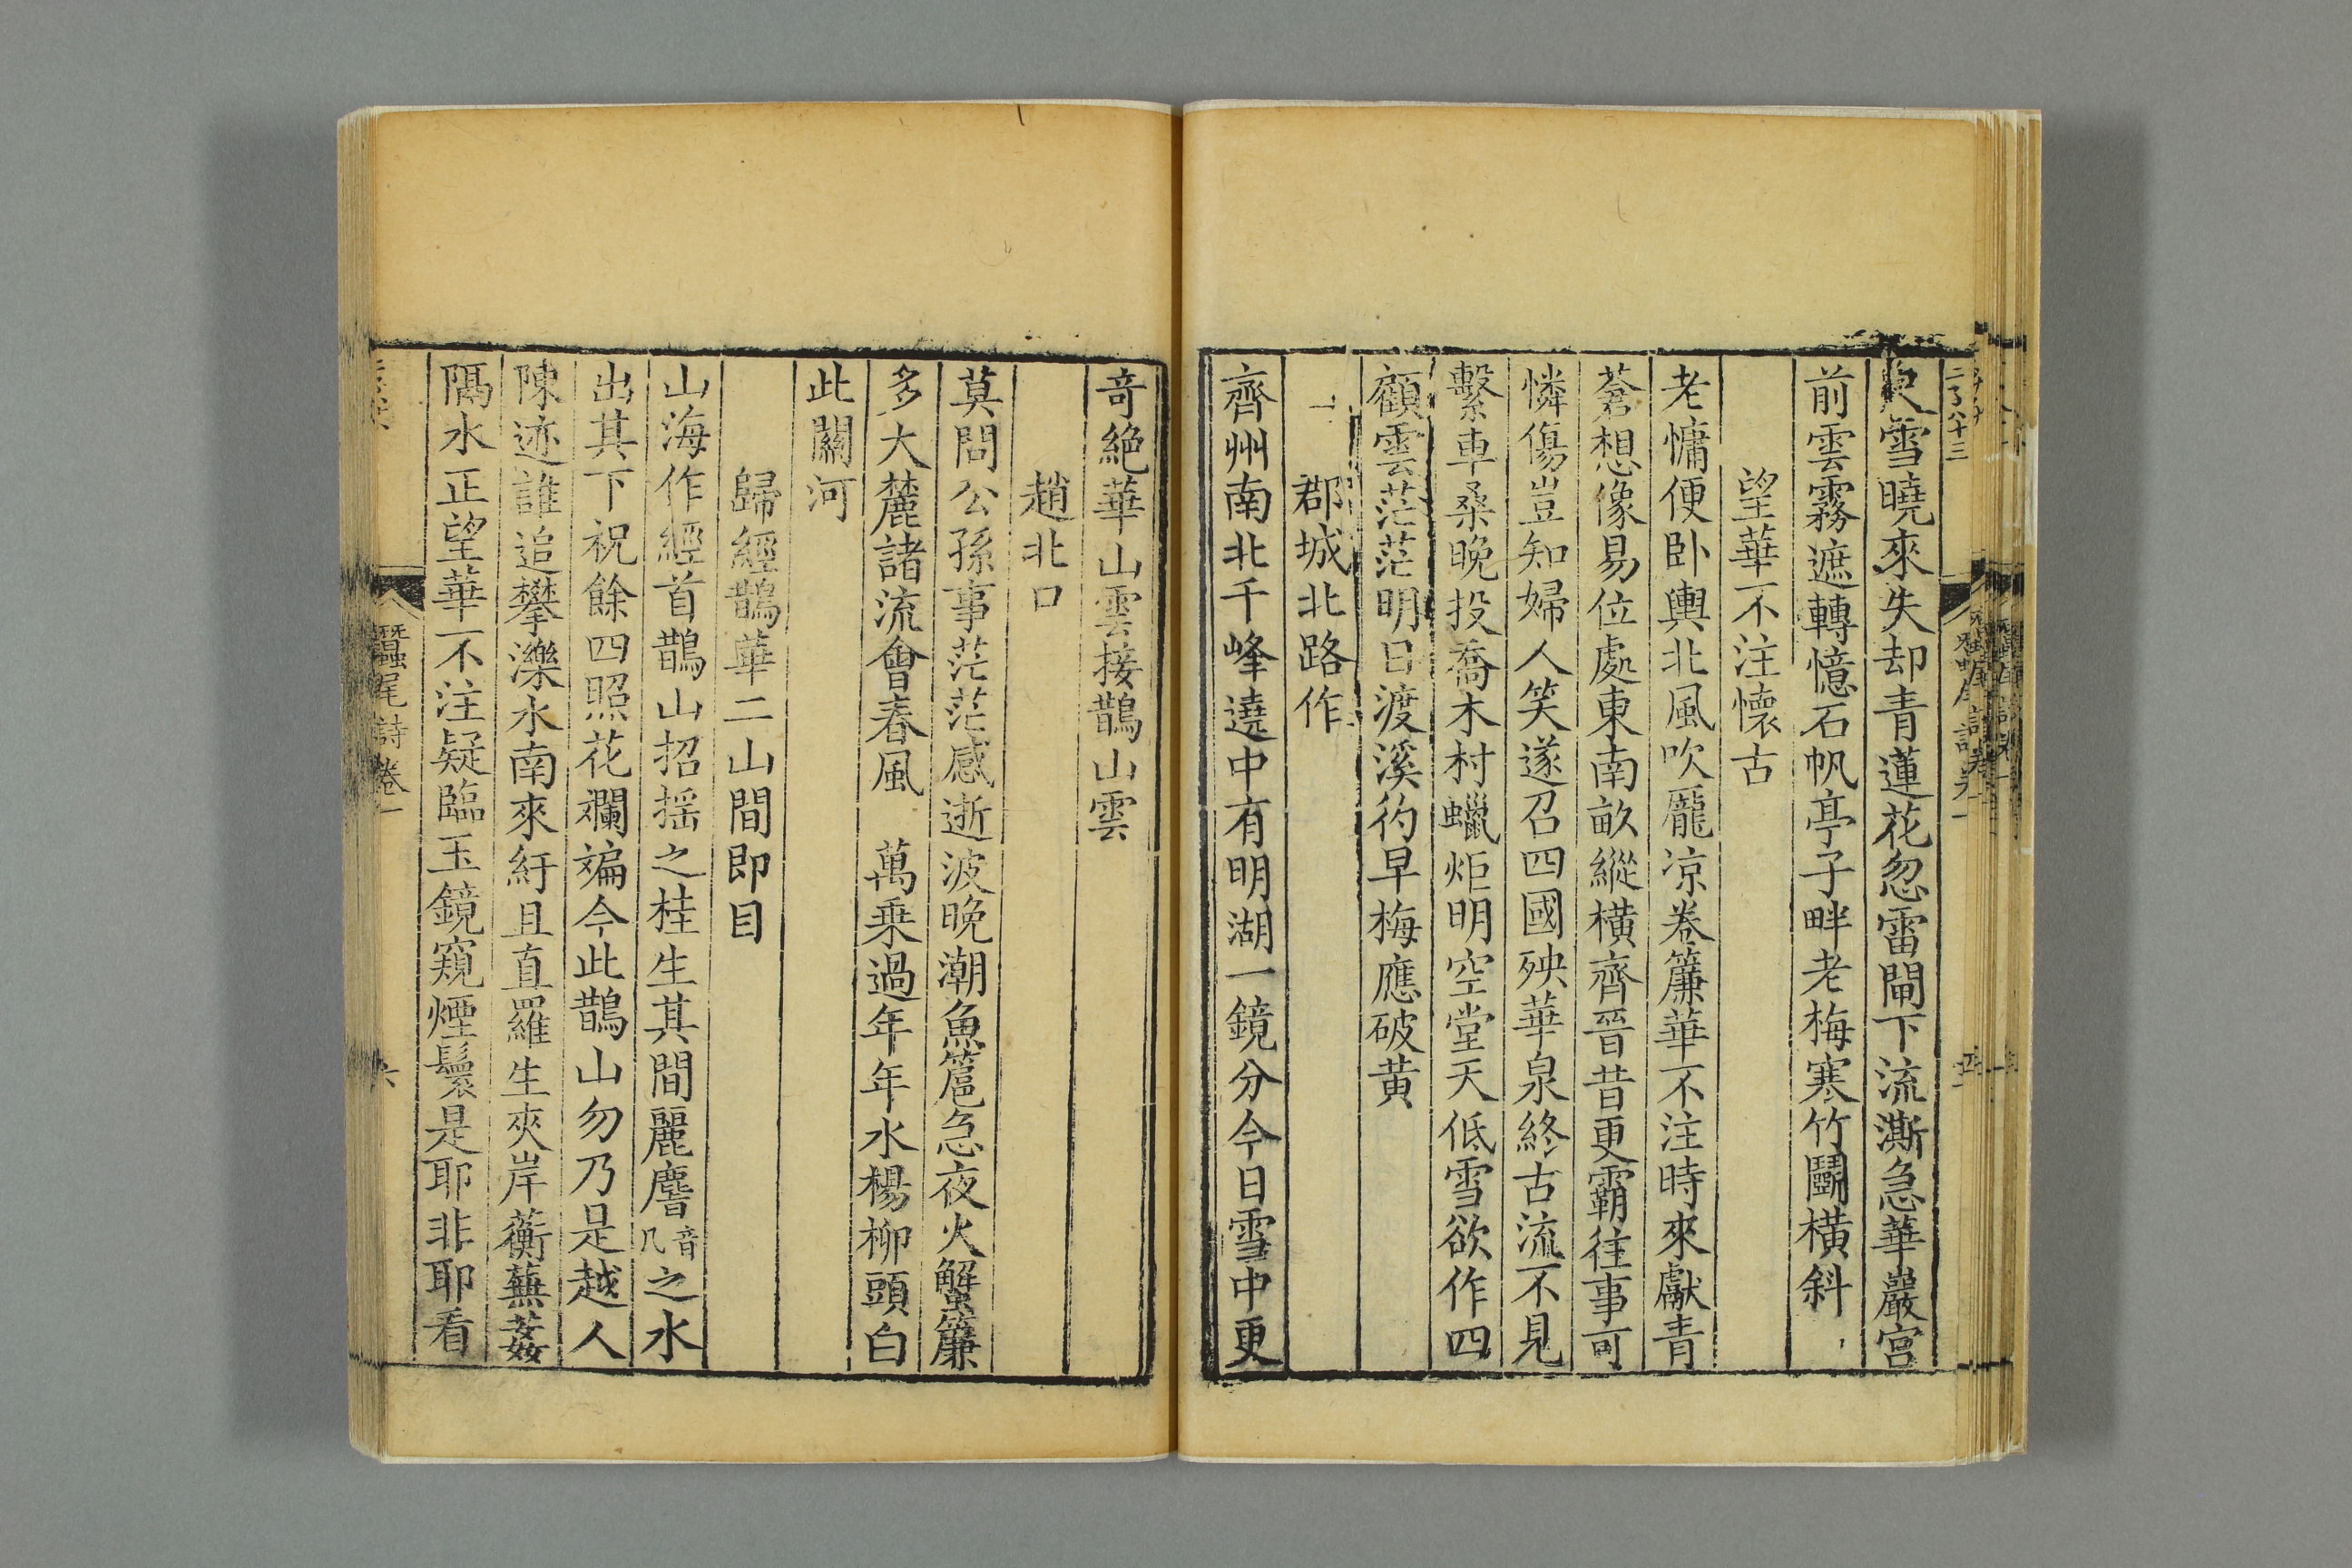 尺雪曉來失却青蓮花忽雷閘下流澌急華巖宮
前雲霧遮轉憶石帆亭子畔老梅寒竹鬬橫斜
望華不注懷古
老慵便卧輿北風吹龎凉卷簾華不注時來獻青
蒼想像易位處東南畝縱橫齊晉昔更霸往事可
憐傷豈知婦人笑遂召四國殃華泉終古流不見
繫車桑晚投喬木村蠟炬明空堂天低雪欲作四
顧雲茫茫明日渡溪彴早梅應破黃
郡城北路作
齊州南北千峰遶中有明湖一鏡分今日雪中更
奇絕華山雲接鵲山雲
趙北口
莫問公孫事茫茫感逝波晚潮魚扈急夜火蟹簾
多大麓諸流會春風 萬乗過年年水楊柳頭白
此關河
歸經鵲華二山間即目
山海作經首鵲山招摇之桂生其間麗𪊨音几之水
出其下祝餘四照花斕斒今此鵲山勿乃是越人
陳迹誰追攀濼水南來紆且直羅生夾岸蘅蕪葌
隔水正望華不注疑臨玉鏡窺煙鬟是耶非耶看
蠶尾詩卷一
六